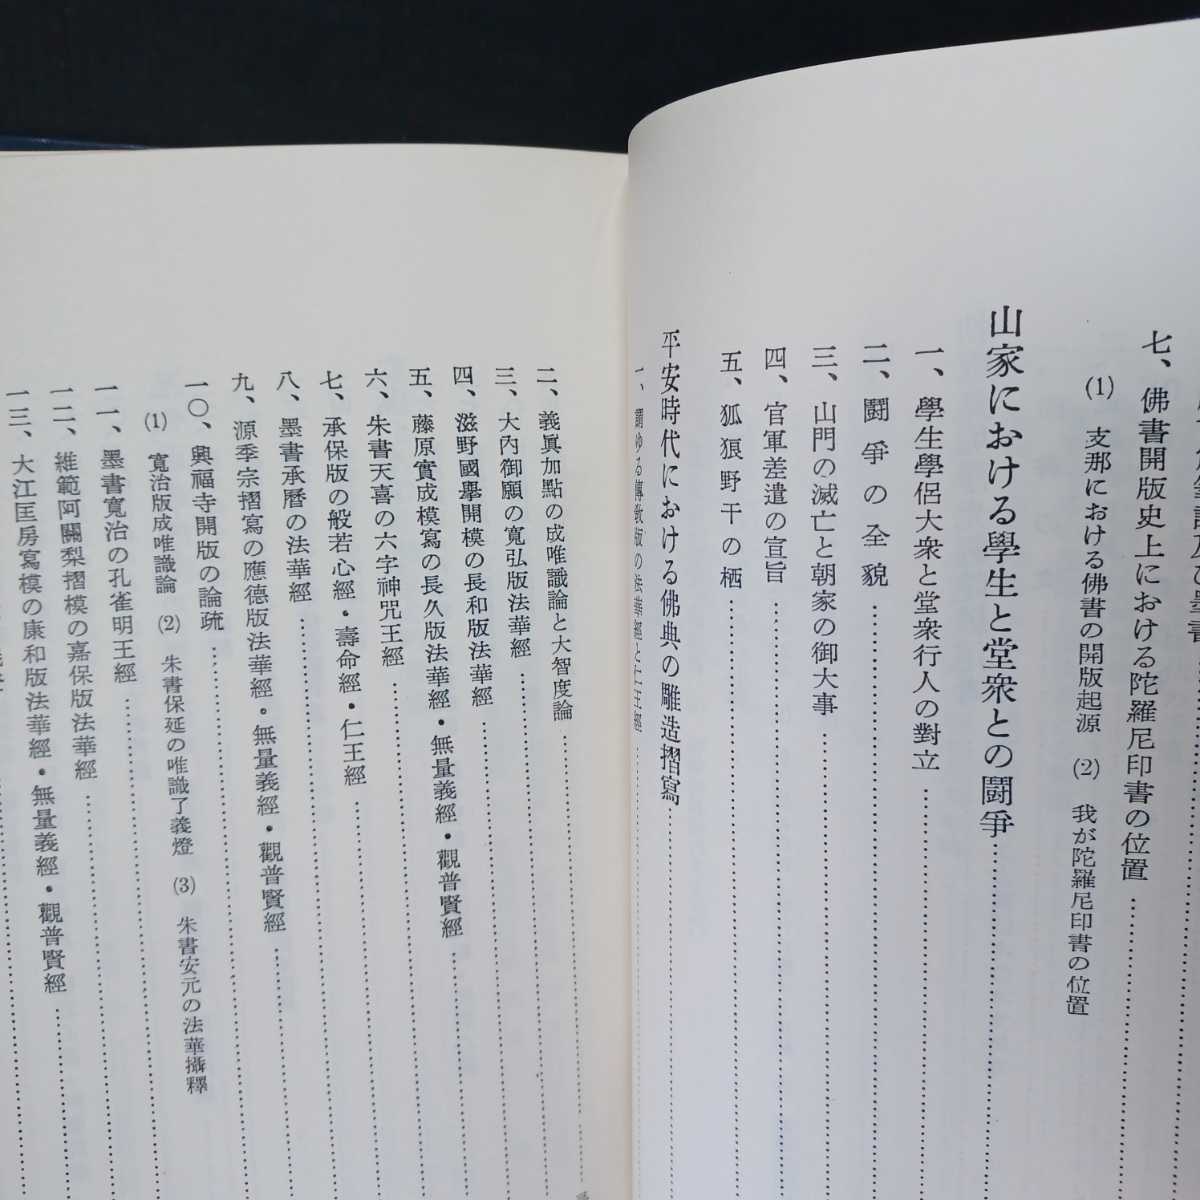 七、佛書開版史上における陀羅尼印書の位置
(1) 支那における佛書の開版起源 (2) 我が陀羅尼印書の位置
山家における學生と堂衆との鬪爭
一、學生學侶大衆と堂衆行人の對立
二、鬪爭の全貌
三、山門の滅亡と朝家の御大事
四、官軍差遣の宣旨
五、狐狼野干の栖
平安時代における佛典の雕造摺寫
一、謂ゆる傳教版の法華經と仁王經
二、義眞加點の成唯識論と大智度論
三、大內御願の寬弘版法華經
四、滋野國擧開模の長和版法華經
五、藤原實成模寫の長久版法華經・無量義經・觀普賢經
六、朱書天喜の六字神咒王經
七、承保版の般若心經・壽命經・仁王經
八、墨書承曆の法華經
九、源季宗摺寫の應德版法華經・無量義經・觀普賢經
一〇、興福寺開版の論疏
(1) 寬治版成唯識論 (2) 朱書保延の唯識了義燈 (3) 朱書安元の法華攝釋
一一、墨書寬治の孔雀明王經
一二、維範阿闍梨摺模の嘉保版法華經
一三、大江匡房寫模の康和版法華經・無量義經・觀普賢經